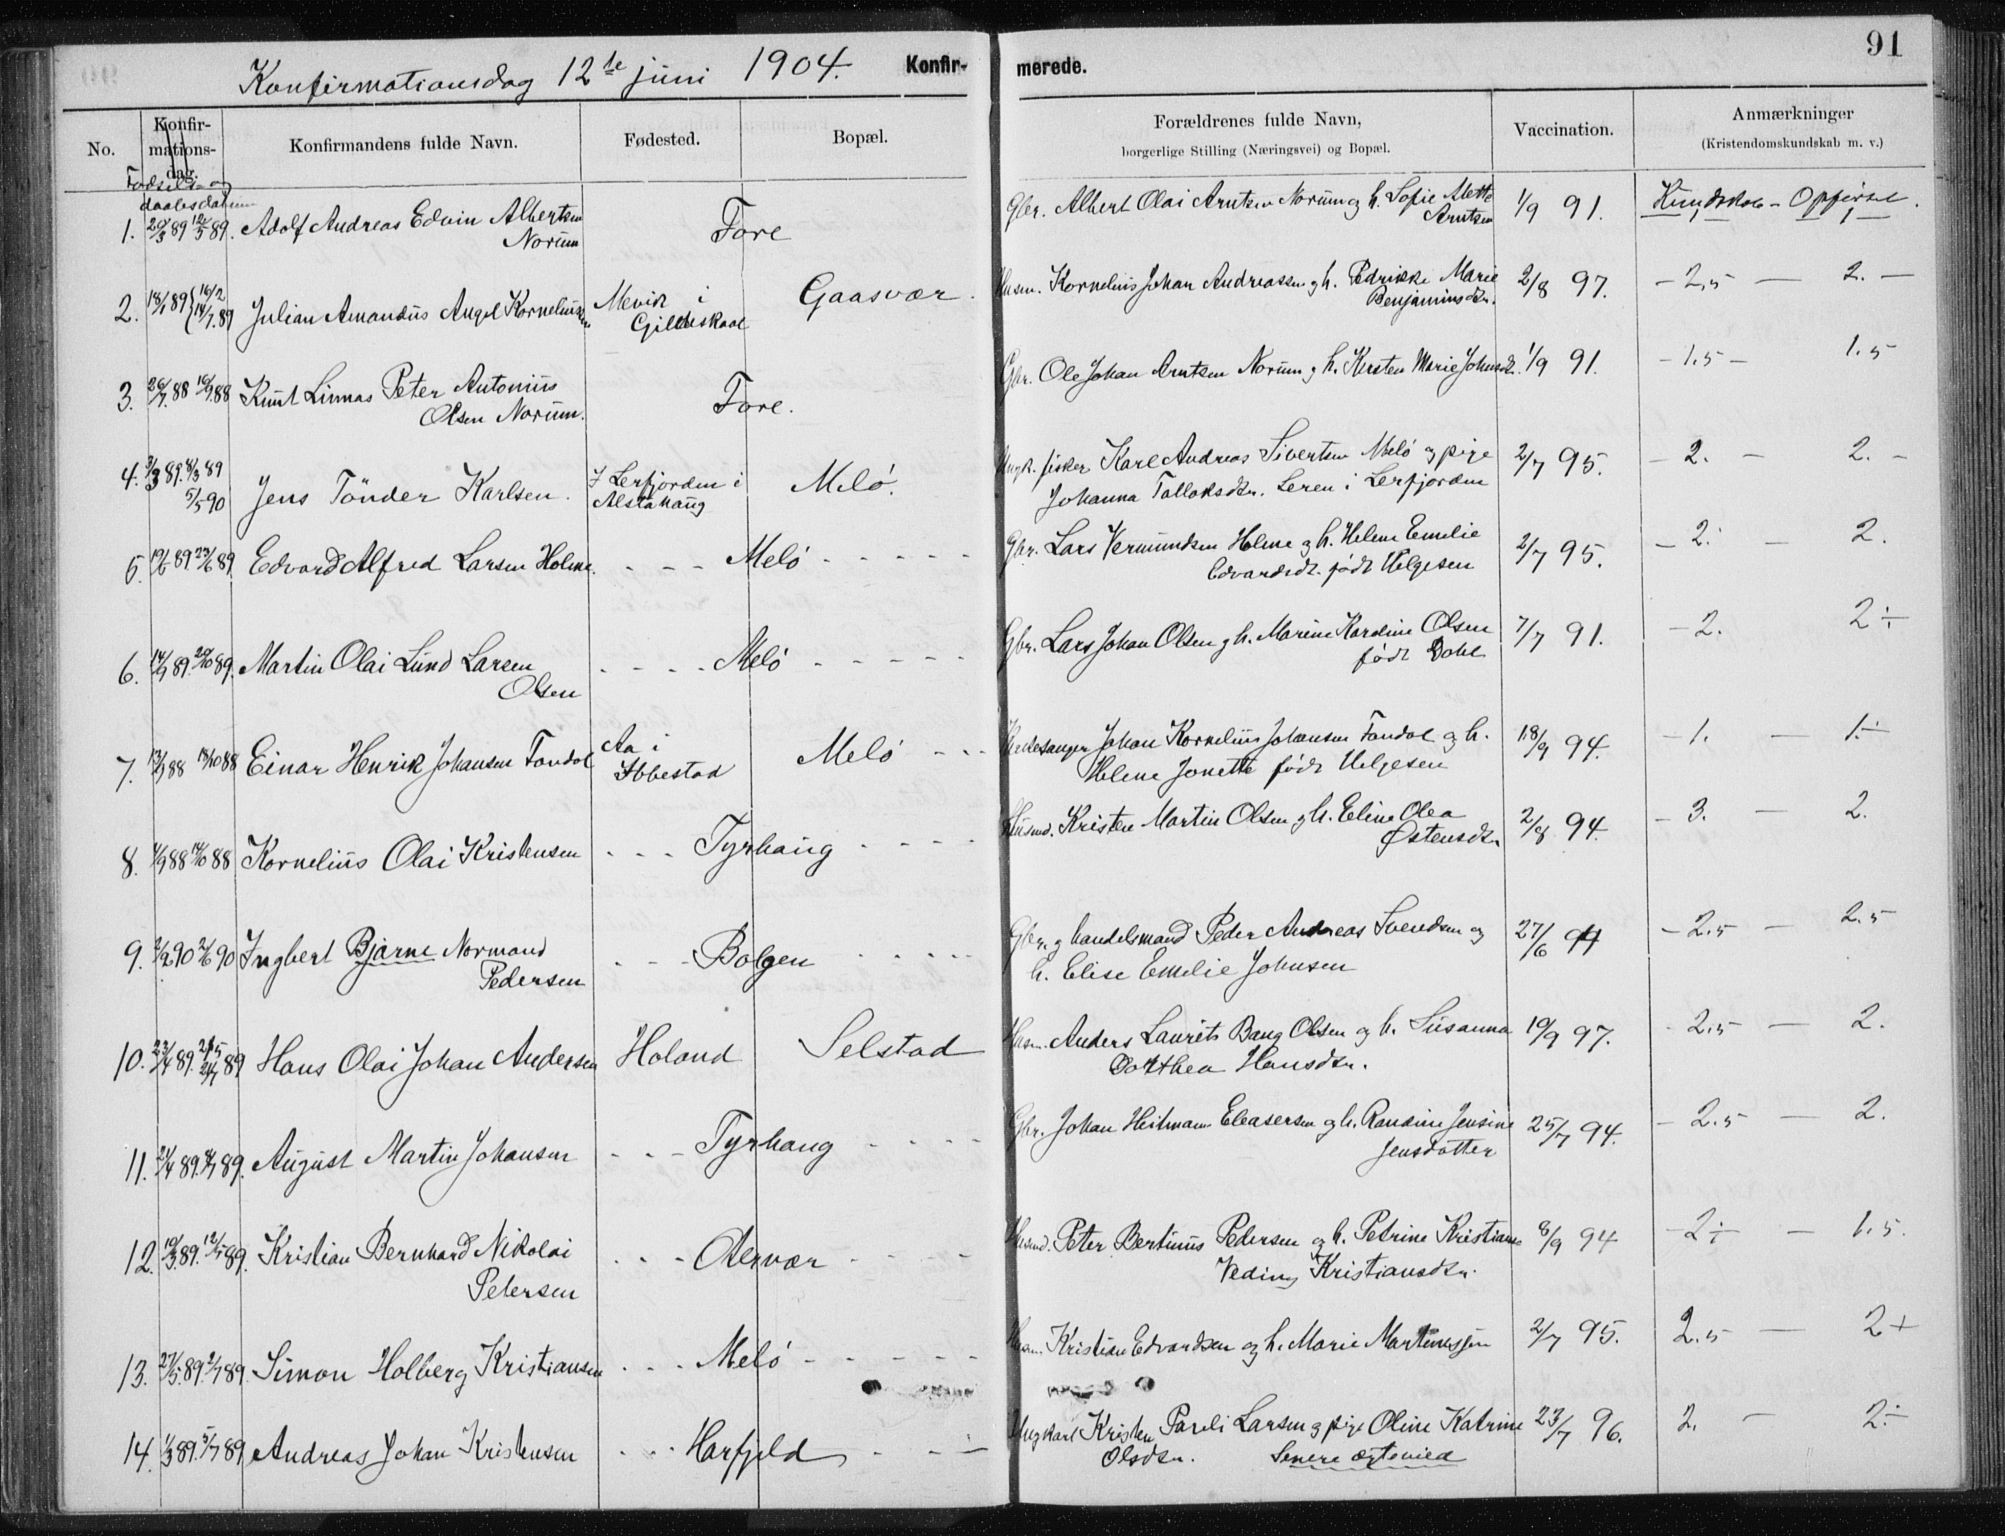 91
Konfirmationsdag 12te juni 1904. Konfir-
merede.
No. Konfir-mations-dag. Konfirmandens fulde Navn. Fødested. Bopæl. Forældrenes fulde Navn, borgerlige Stilling (Næringsvei) og Bopæl. Vaccination. Anmærkninger (Kristendomskundskab m. v.)
Fødsels- og
daabsdatum
1. 20/3 89 12/5 89. Adolf Andreas Edvin Albertsen Fore Gbr. Albert Olai Arntsen Norum og h. Sofie Mette 1/9 91. Kundskab - Opførsel.
Norum Arntsen 1 1
2. 18/1 89 {16/2 14/7 89 Julian Amandus Angel Korneliussen Mevik i Gaasvær. Husm. Kornelius Johan Andreassen og h. Fedrikke Marie 2/8 97. - 2,5 - 2. -
Gildeskaal Benjaminsdtr.
3. 26/7 88 16/9 88 Knut Linnas Peter Antonius Fore. Gbr. Ole Johan Arntsen Norum og h. Kirsten Marie Johnsdt. 1/9 91. - 1.5 - 1.5
Olsen Norum.
4. 3/3 89. 8/3 89 Jens Tönder Karlsen. I Lerfjorden i Melö. Ungk. fisker Karl Andreas Sivertsen Melö og pige 2/7 95. - 2. - 2. -
5/5 90 Alstahaug Johanna Tollaksdtr. Leren i Lerfjorden
5. 19/5 89 23/6 89. Edvard Alfred Larsen Holme. - - - Melö - - - - - Gbr. Lars Vermundsen Holme og h. Helene Emelie 2/7 95. - 2. - 2.
Edvardsdt. født Helgesen
6. 14/9 89. 20/10 89. Martin Olai Lund Larsen - - - - Melö - - - - - Gbr. Lars Johan Olsen og h. Marine Kardine Olsen 7/7 91. - 2. - 2 ÷
Olsen født Dahl
7. 13/9 88 13/10 88 Einar Henrik Johansen Fondal Aa i Melö - - - Kirkesanger Johan Kornelius Johansen Fondal og h. 18/9 94. - 1. - 1.÷
Ibbestad Helene Jonette født Helgesen
8. 1/9 88 14/10 88 Kornelius Olai Kristensen - - - Tyrhaug - - - - Husmd. Kristen Martin Olsen og h. Eline Olea 2/8 94. - 3. - 2.
Østensdtr.
9. 2/2 90 2/6 90 Ingbert Bjarne Normand - - - Bolgen - - - - - Gbr. og handelsmand Peder Andreas Svendsen og 27/6 94 - 2.5 - 2.5
Pedersen h. Elise Emelie Johnsen
10. 23/4 89. 89 Hans Olai Johan Andersen Holand Selstad Husm. Anders Laurits Bang Olsen og h. Susanna 19/9 97. - 2.5 - 2.
Dorthea Hansdtr.
11. 21/4 89. 89. August Martin Johansen - - - Tyrhaug - - - - Gbr. Johan Heitmann Eleasersen og h. Randine Jensine 25/7 94. - 2.5 - 2.
Jensdatter
12. 19/3 89. 12/5 89. Kristian Bernhard Nikolai - - - Otervær - - - - Husmd. Peter Bertinus Pedersen og h. Petrine Kristiane 8/9 94 - 2÷ - 1.5.
Petersen Vedine Kristiansdtr.
13. 27/5 89. 2/7 89. Simon Holberg Kristiansen - - - Melö - - - - - Husm. Kristian Edvardsen og h. Marie Martinussen 2/7 95. 2.5 - 2+
14. 1/3 89. 5/7 89 Andreas Johan Kristensen - - - Harfjeld - - - Ungkarl Kristen Pareli Larsen og pige Oline Katrine 23/7 96. 2. - 2.÷
Olsdtr. Senere ægtevied